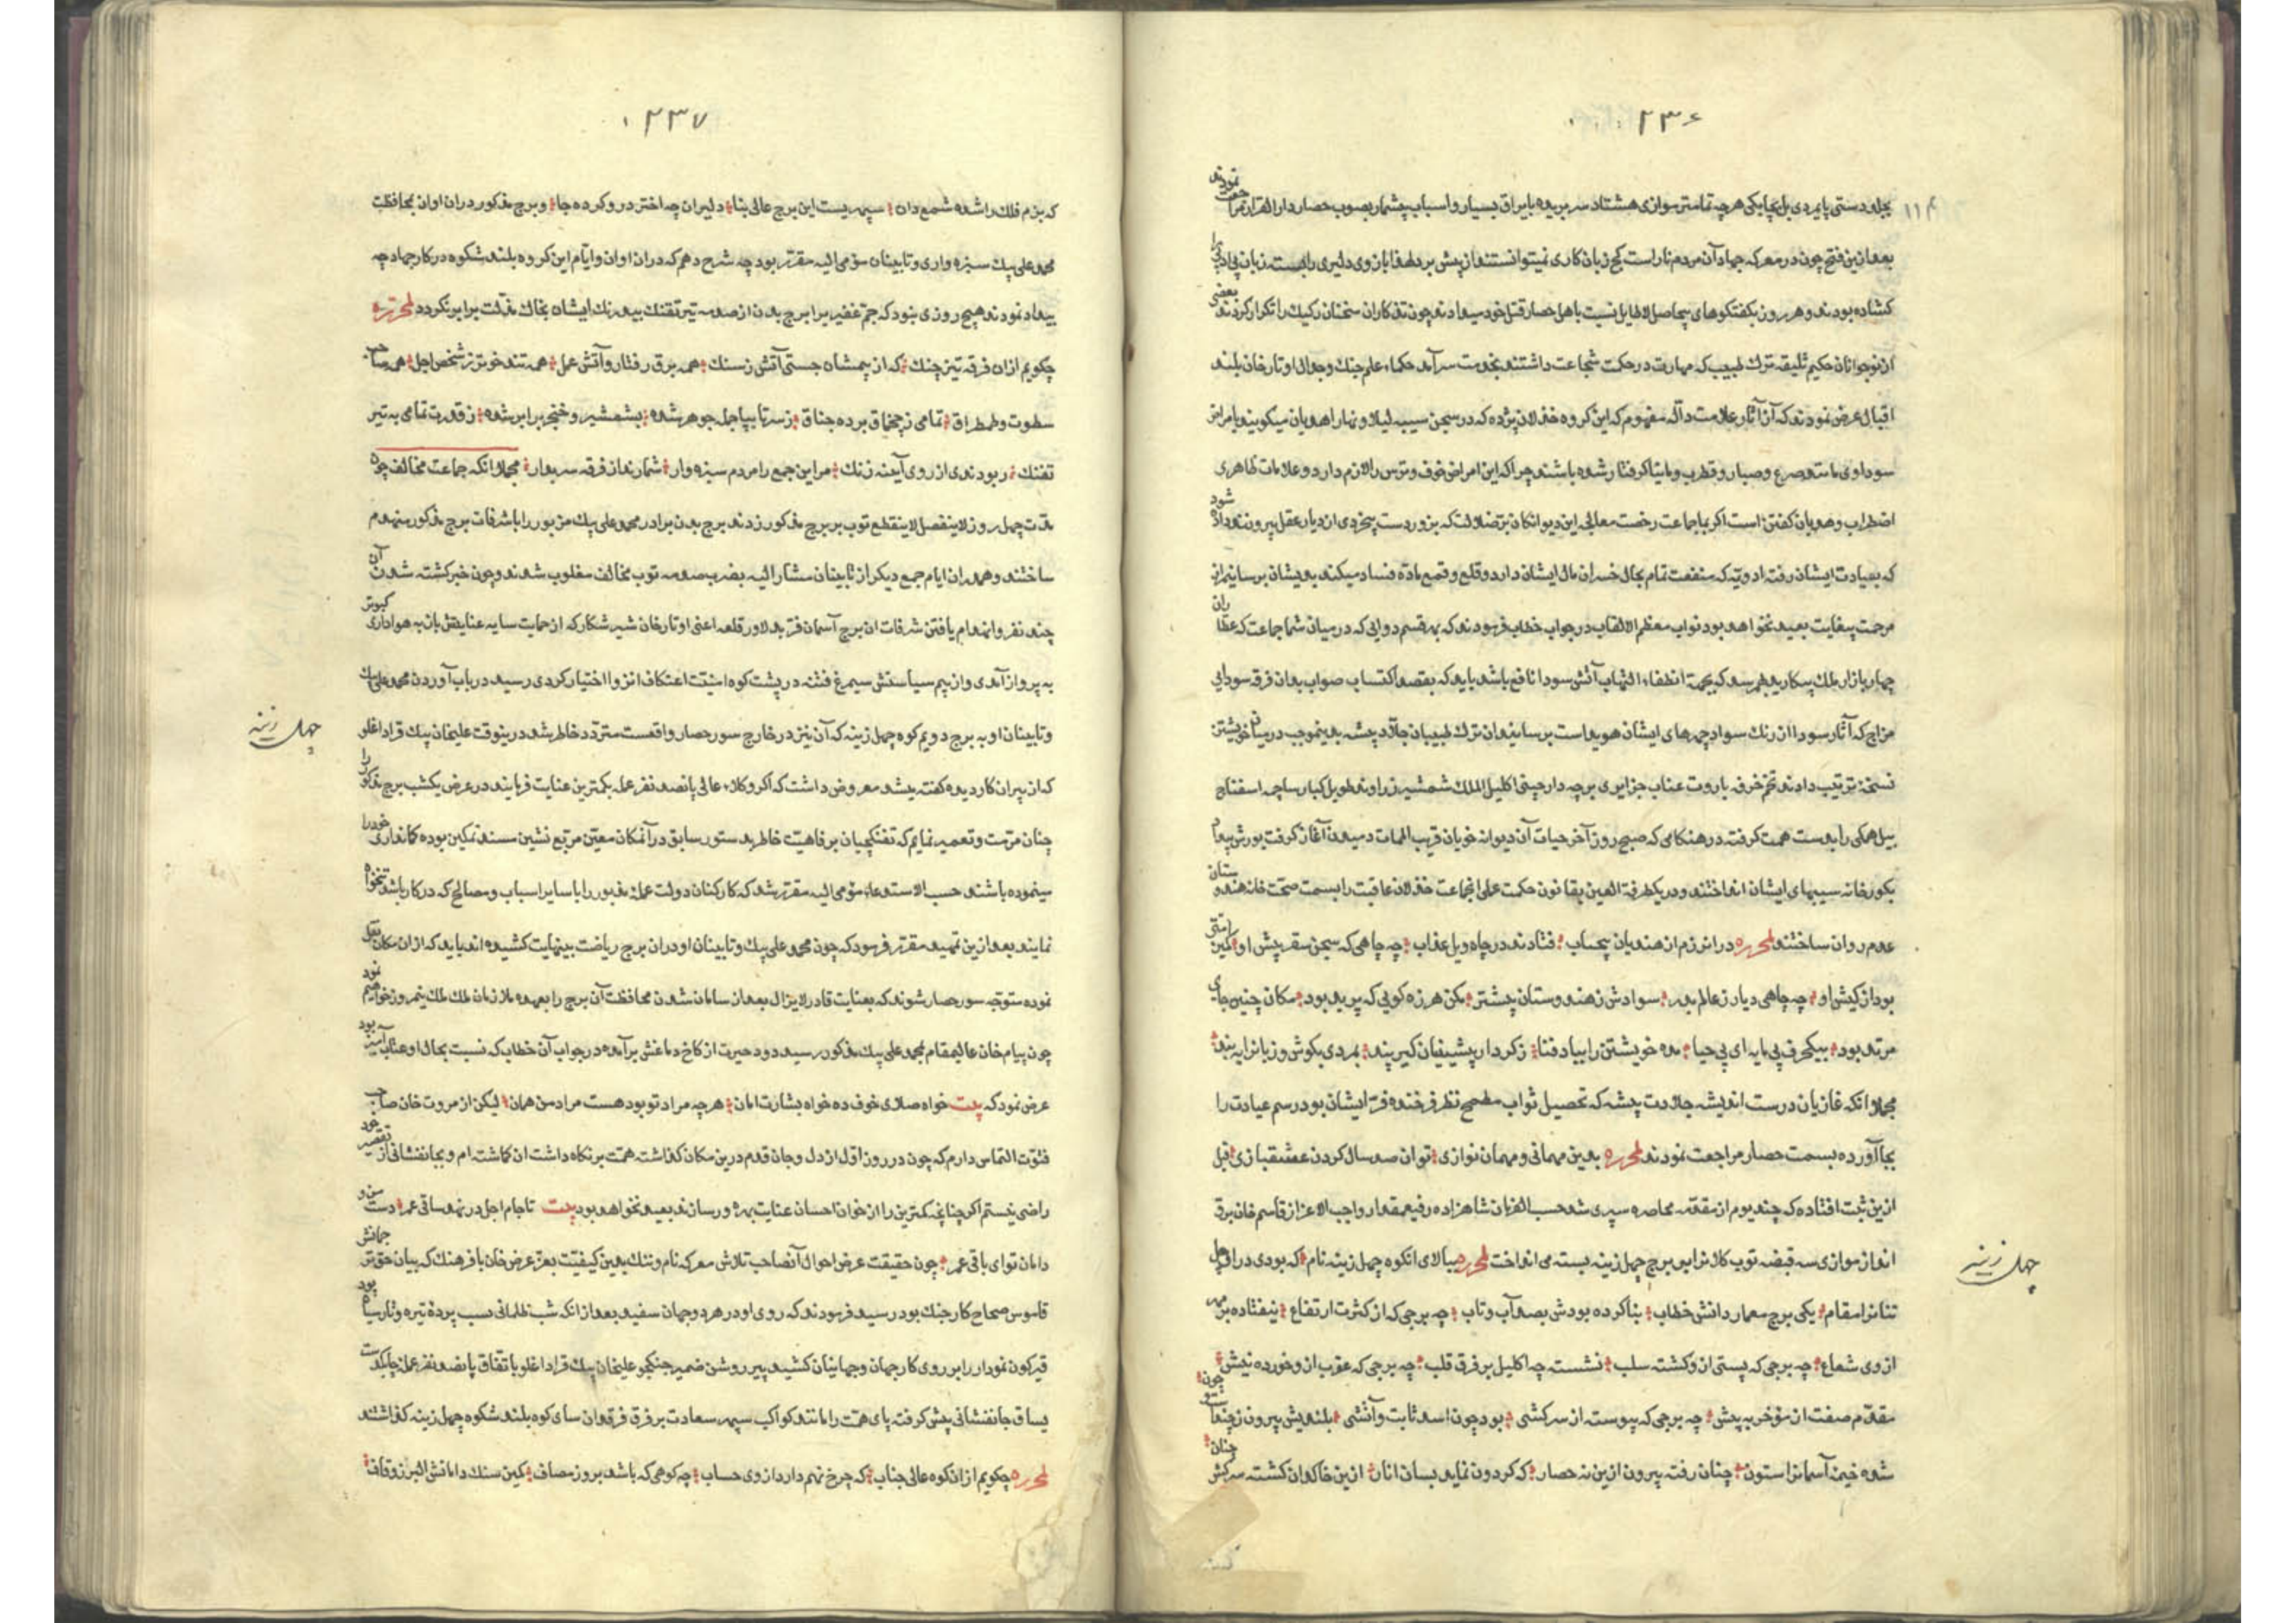 ۲۳۶
بجلد دستی پایمردی بل بچابکی هرچه تمامتر موازی هشتاد سر بریده با یراق بسیار و اسباب بیشمار بصوب حصار دار القرار مراجعت نمودند
بعد ازین فتح چون در معرکه جهاد آن مردم ناراست کج زبان کاری نمیتوانستند از پیش برد لهذا بازوی دلیری را بسته زبان بی ادبی را
کشاده بودند و هر روز بکفتکوهای بیحاصل لاطایل نسبت باهل حصار قتل خود میعادند چون تذکاران سخنان رکیك را تکرار کردند بعضی
از نوجوانان حکیم سلیقه ترك طبیب که مهارت در حکمت شجاعت داشتند بخدمت سرآمد حکماء علم جنك وجدال اوتارخان بلند
اقبال عرض نمودند که از آثار علامت دالّه مفهوم که این کروه خذلان پژده که در سجن سیبه لیلا و نهارا هذیان میکویند بامراض
سوداوی مانند صرع و صبار و قطرب و مانیا کرفتار شده باشند چرا که این امراض خوف و ترس را لازم دارد و علامات ظاهری
اضطراب و هذیان کفتن است اکر بما جماعت رخصت معالجه این دیوانکان بتر ضلالت که بزور دست بیخردی از دیار عقل بیرونند داده شود
که بعیادت ایشان رفته ادویه که منفعت تمام بحال خسران مال ایشان دارد و قلع و قمع مادّه فساد میکند بدیشان برسانیم از
مرحمت بیغایت بعید نخواهد بود نواب معظم الالقاب در جواب خطاب فرمودند که بهر قسم دوایی که در میان شما جماعت که عطاران
چهار بازار ملك پیکارید بهم رسد که بجهة انطفاء التهاب آتش سودا نافع باشد باید که بقصد اکتساب صواب بدان فرقه سودایی
مزاج که آثار سودا از رنك سواد چهرهای ایشان هویداست برسانید ان ترك طبیبان جلّاد پیشه بدینموجب در میان خویشتن
نسخه ترتیب دادند تخم خرفه باروت عناب جزایری برچه دارچینی اکلیل الملك شمشیر زراوند طویل کبار ساچمه اسفناج
بیل همکی را بدست همت کرفته در هنکامی که صبح روز آخر حیات آن دیوانه خویان قریب الممات دمیدن آغاز کرفت یورش
بکورخانه سیبهای ایشان انداختند و در یکطرفة العین بقانون حکمت علی انجماعت خذلان عاقبت را بسمت صحّت خانه هندوستان
عدم روان ساختند لمحرره در انرزم از هندیان بیحساب فتادند در چاه ویل عذاب چه چاهی که سجن سقر پیش او
بود از کیش او چه چاهی دیار ز عالم بدر سوادش ز هندوستان بیشتر مکن هرزه کویی که پر بد بود مکان چنین جای
مرتد بود بیکحرف بی مایه ای بی حیا مده خویشتن را بباد فنا ز کردار پیشینیان کیر پند بمردی بکوش و زبانرا ببند
مجملا انکه غازیان درست اندیشه جلادت پیشه که تحصیل ثواب مطمح نظر فرخنده فر ایشان بود رسم عیادت را
بجا آورده بسمت حصار مراجعت نمودند لمحرره بدین مهمانی و مهمان نوازی توان صد سال کردن عشقبازی قبل
ازین ثبت افتاده که چند یوم از مقدمه محاصره سپری شد حسب الفرمان شاهزاده رفیع مقدار واجب الاعزاز قاسم خان برق
انداز موازی سه قبضه توپ کلانرا بر برج چهل زینه بسته می انداخت لمحرره ببالای انکوه چهل زینه نام که بودی در
یکی برج معمار دانش خطاب بنا کرده بودش بصد آب و تاب چه برجی که از کثرت ارتفاع نیفتاده بر مهر
ازوی شعاع چه برجی که پستی ازو کشته سلب نشسته چه اکلیل بر فرق قلب چه برجی که عقرب ازو خورده نیش
مقدّم صفت از موخر به پیش چه برجی که پیوسته از سرکشی بود چون اسد ثابت و آتشی بلندیش بیرون ز
شده خیمۀ آسمانرا ستون چنان رفته بیرون ازین نه حصار که کردون نماید بسان انار ازین خاکدان کشته سرکش چنان
چهل زینه
۲۳۷
که بزم فلك را شده شمع دان سپهریست این برج عالی بنا دلیران چه اختر درو کرده جا و برج مذکور دران اوان بمحافظت
محمد علی بیك سبزه واری و تابینان مومی الیه مقرّر بود چه شرح دهم که دران اوان و ایام این کروه بلند شکوه در کار جهاد چه
بیداد نمودند هیچ روزی نبود که جمّ غفیر برابر برج بدن از صدمه تیر تفنك بیدرنك ایشان بخاك مذلّت برابر نکردد لمحرره
چکویم ازان فرقه تیز چنك که از بیمشان جستی آتش ز سنك همه برق رفتار و آتش عمل همه تند خوتر ز شخص اجل همه صاحب
سطوت و طمطراق تمامی ز چخماق برده جناق ز سر تا بپا جمله جوهر شده بشمشیر و خنجر برابر شده ز قدرت تمامی به تیر
تفنك ربودندی از روی آینه زنك مر این جمع را مردم سبزه وار شمارند از فرقه سربدار مجملا انکه جماعت مخالف چون
مدّت چهل روز لاینفصل لاینقطع توپ بر برج مذکور زدند برج بدن برادر محمد علی بیك مزبور را باشرفات برج مذکور منهدم
ساختند و همدران ایام جمع دیکر از تابینان مشار الیه بضرب صدمه توپ مخالف مغلوب شدند و چون خبر کشته شدن آن
چند نفر و انهدام یافتن شرفات ان برج آسمان فر به دلاور قلعه اعنی اوتارخان شیر شکار که از حمایت سایه عنایتش باز به هواداری کبوتر
به پرواز آمدی و از بیم سیاستش سیمرغ فتنه در پشت کوه امنیّت اعتکاف انزوا اختیار کردی رسید در باب آوردن محمد علی بیك
و تابینان او به برج دویم کوه چهل زینه که آن نیز در خارج سور حصار واقعست متردّد خاطر شد درینوقت علیخان بیك قراداغلو
که از پیران کاردیده کفته میشد معروض داشت که اکر وکلاء عالی پانصد نفر عمله بکمترین عنایت فرمایند در عرض یکشب برج مذکور را
چنان مرمّت و تعمیر نمایم که تفنکچیان بر فاهیت خاطر بدستور سابق در آنمکان معیّن مربع نشین مسند تمکین بوده کمانداری خود را
مینموده باشند حسب الاستدعاء مومی الیه مقرّر شد که کارکنان دولت عملۀ مذبور را با سایر اسباب و مصالح که در کار باشد تنخواه
نمایند بعد ازین تمهید مقرّر فرمود که چون محمد علی بیك و تابینان او دران برج ریاضت بینهایت کشیده اند باید که ازان مکان نقل
نموده متوجّه سور حصار شوند که بعنایت قادر لایزال بعد از سامان شدن محافظت آن برج را بعهده ملازمان ملك ملك نیمروز خواهیم نمود
چون پیام خان عالیمقام بمحمد علی بیك مذکور رسید دود حیرت از کاخ دماغش برآمده در جواب آن خطاب که نسبت بحال او عتاب آمیز بود
عرض نمود که بیت خواه صلای خوف ده خواه بشارت امان هرچه مراد تو بود هست مراد من همان لیکن از مروت خان صاحب
فتوّت التماس دارم که چون در روز اوّل از دل و جان قدم درین مکان کذاشته همّت بر نکاه داشت ان کماشته ام و بجانفشانی از تقصیر خود
راضی نیستم اکر چنانچه کمترین را از خوان احسان عنایت بهره ور سازند بعید نخواهد بود بیت تا جام اجل در ندهد ساقی عمر دست من و
دامان تو ای باقی عمر چون حقیقت عرض احوال آنصاحب تلاش معرکه نام و ننك بدین کیفیّت بعزّ عرض خان با فرهنك که بیان حق
قاموس صحاح کار جنك بود رسید فرمودند که روی او در هر دو جهان سفید بعد از انکه شب ظلمانی نسب پردۀ تیره و تار سیاه
قیرکون نمودار را بر روی کار جهان و جهانیان کشید پیر روشن ضمیر جنکجو علیخان بیك قراداغلو باتفاق پانصد نفر عمله چابکدست
یساق جانفشانی پیش کرفته پای همّت را مانند کواکب سپهر سعادت بر فرق فرقدان سای کوه بلند شکوه چهل زینه کذاشتند
لمحرره چکویم ازان کوه عالی جناب که چرخ نهم دارد ازوی حساب چه کوهی که باشد بروز مصاف کمین سنك دامانش البرز و قاف
چهل زینه